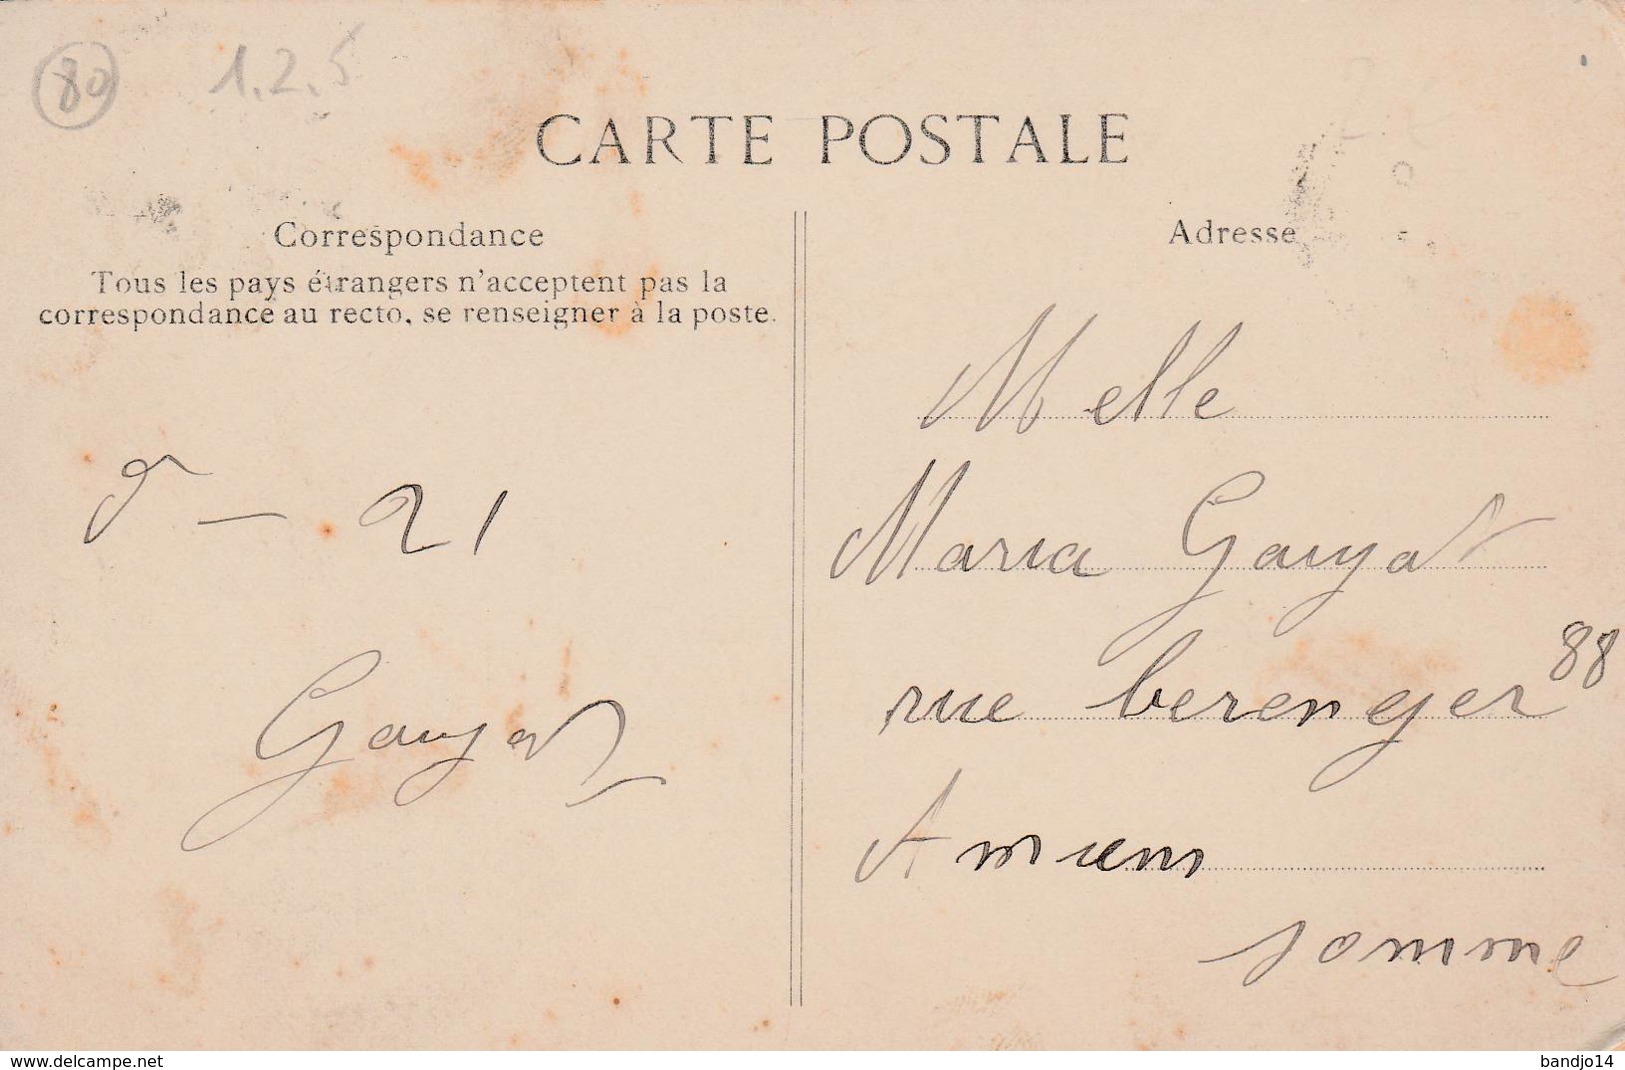 80 1.2.5
CARTE POSTALE
Correspondance
Tous les pays étrangers n'acceptent pas la
correspondance au recto, se renseigner à la poste.
5 - 21
Gauyat
Adresse
Melle
Maria Gauyat
rue berenger 88
Amiens
somme
www.delcampe.net
bandjo14